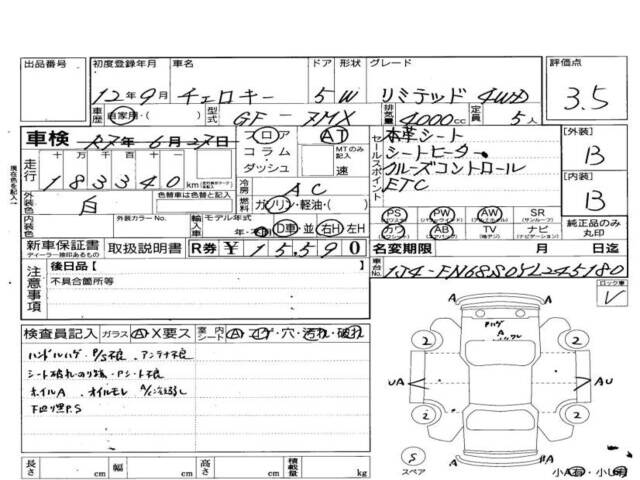 出品番号 初度登録年月 車名 ドア 形状 グレード 評価点
12年9月 チェロキー 5 W リミテッド 4WD 3.5
車歴 自家用・( ) 型式 GF-7MX 排気量 4000cc 定員 5人
車検 R7年6月27日 フロア AT 本革シート 【外装】
コラム MTのみ記入 シートヒーター B
走行 十万 千 百 十 ダッシュ 速 セールスポイント クルーズコントロール
183340km ETC 【内装】
冷房 AC B
外装色 白 色替車は色替と記入 燃料 ガソリン・軽油・( )
内装色 外装カラーNo. 輸入車 モデル年式 D車・並 右H 左H
PS PW AW SR(サンルーフ)
カワ AB TV ナビ(ナビゲーション) 純正品のみ丸印
新車保証書 取扱説明書 R券 ¥15,590 名変期限 月 日迄
ディーラー捺印あるもの
注意事項 後日品【 】 車台No. 1J4-FN68S0YL245180
不具合箇所等 ロック車
検査員記入 ガラス A・X要ス 室内シート A・コゲ・穴・汚れ・破れ
ハンドルハゲ・P/S不良 アンテナ不良
ホイルA、オイルモレ
下回り黒P.S
Pハゲ
A
A A
2 2
UA AU
2 2
S
スペア A A
長さ cm 幅 cm 高さ cm 積載量 kg 小A有・小U有
現在色を記入